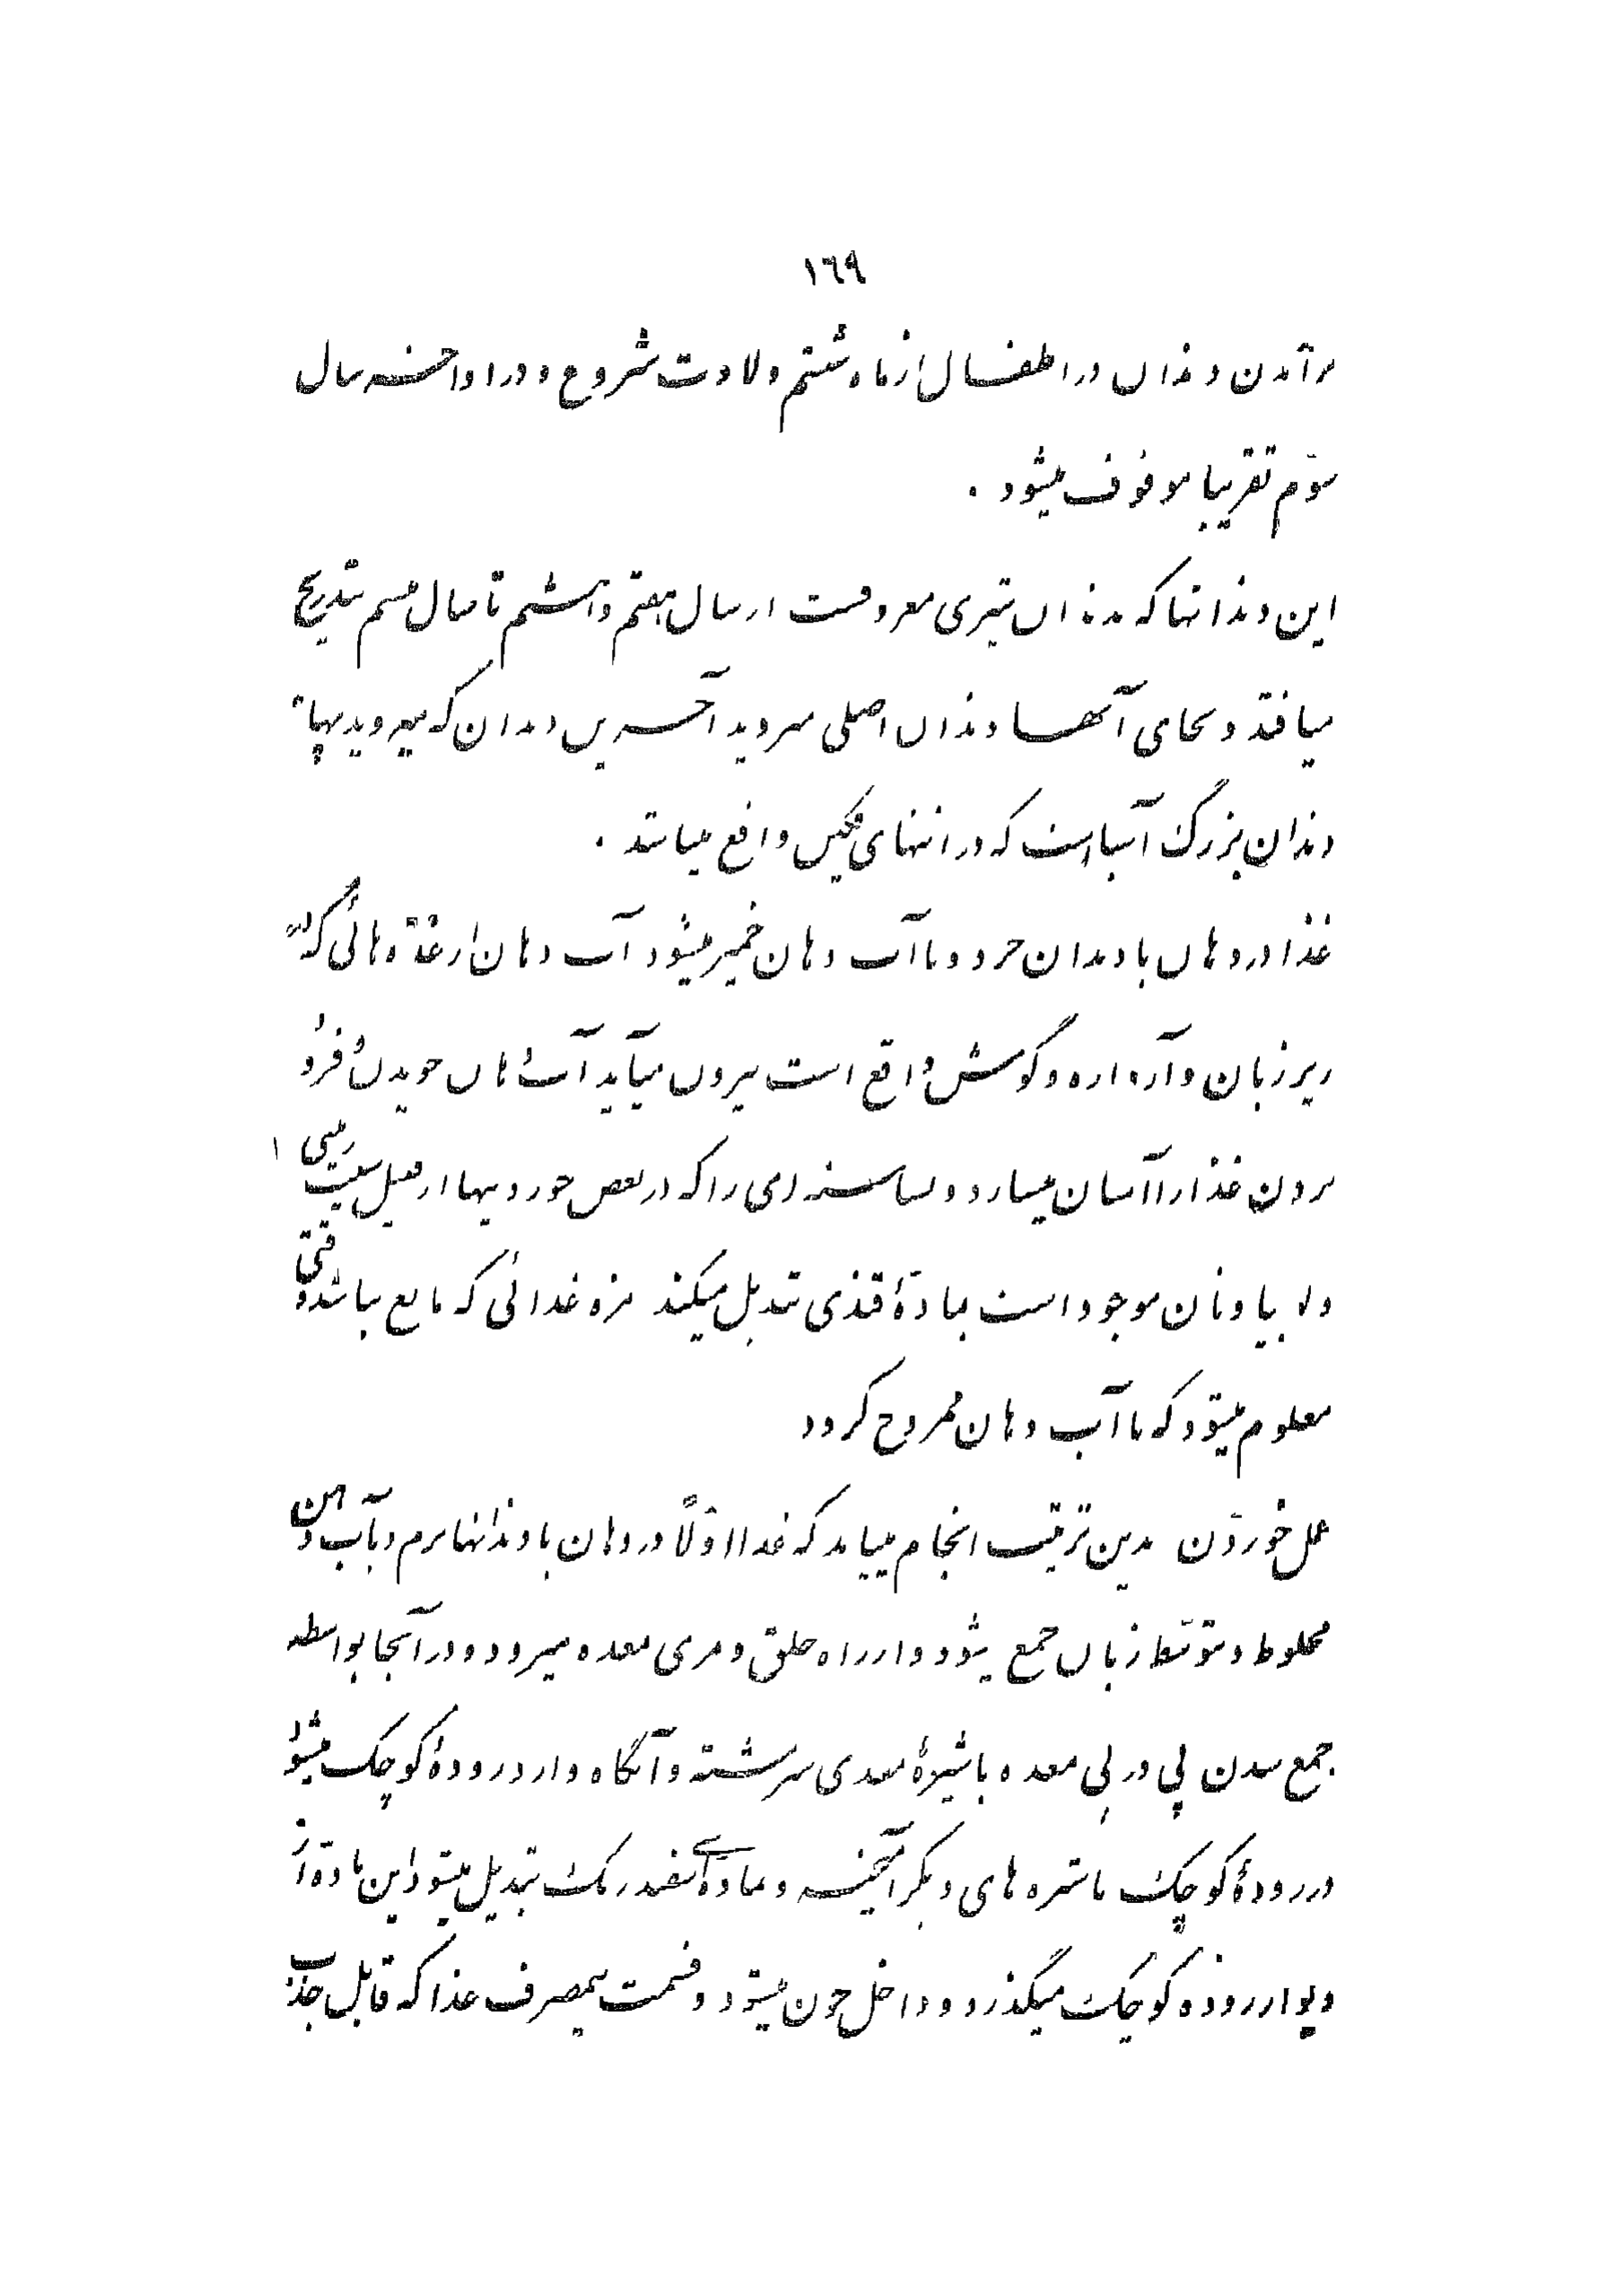 ١٦٩
برآمدن دندان در اطفال از ماه ششم ولادت شروع و در اواخر سال
سوّم تقریبا موقوف میشود .
این دندانها که بدندان شیری معروفست از سال هفتم و هشتم تا سال بتدریج
میافتد و بجای آنها دندان اصلی میروید آخرین دندان که میروید چهار
دندان بزرگ آسیا است که در انتهای فکین واقع میباشد .
غذا در دهان با دندان خرد و با آب دهان خمیر میشود آب دهان از غدّه هائی که در
زیر زبان و آرواره و گوش واقع است بیرون میآید آب دهان جویدن و فرو
بردن غذا را آسان میسازد و نشاسته ای را که در بعض خوردنیها از قبیل سیب زمینی
و لوبیا و نان موجود است بمادّهٔ قندی تبدیل میکند مزه غذائی که مایع نباشد وقتی
معلوم میشود که با آب دهان ممزوج گردد
عمل خوردن بدین ترتیب انجام مییابد که غذا اوّلاً در دهان با دندانها نرم و بآب دهن
مخلوط و بتوسّط زبان جمع میشود و از راه حلق و مری بمعده میرود و در آنجا بواسطه
جمع شدن پی در پی معده با شیرهٔ معدی سرشته و آنگاه وارد رودهٔ کوچک میشود
در رودهٔ کوچک با شیره های دیگر آمیخته و بمادّهٔ سفید رنگ تبدیل میشود این مادّه از
دیوار روده کوچک میگذرد و داخل خون میشود و قسمت بیمصرف غذا که قابل جذب